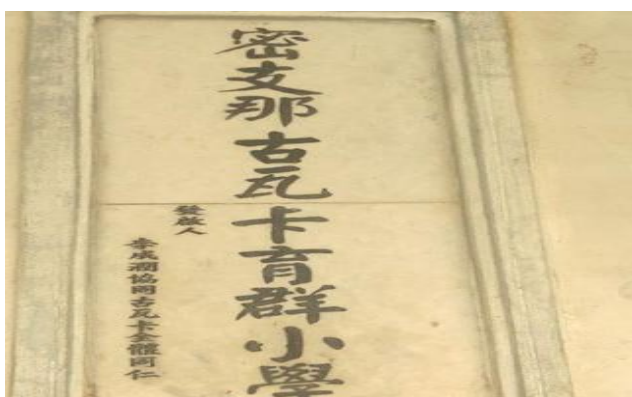 密支那古瓦卡育群小學
發啟人
李成潤協同古瓦卡全體同仁